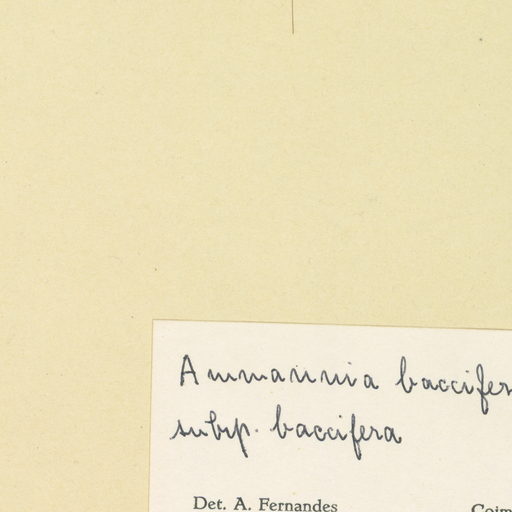 Ammannia baccifer
subsp. baccifera
Det. A. Fernandes Coim